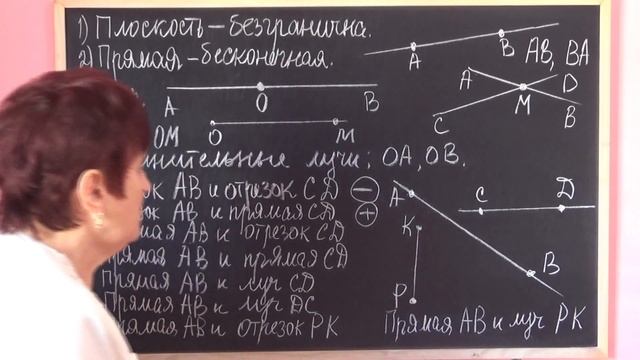 1) Плоскость – безгранична.
2) Прямая – бесконечная.
A B AB, BA
A D
M
C B
A O B
OM O M
лучи; OA, OB.
AB и отрезок CD –
AB и прямая CD +
AB и отрезок CD
Прямая AB и прямая CD
Прямая AB и луч CD
Прямая AB и луч DC
AB и отрезок PK
A C D
K
B
P
Прямая AB и луч PK